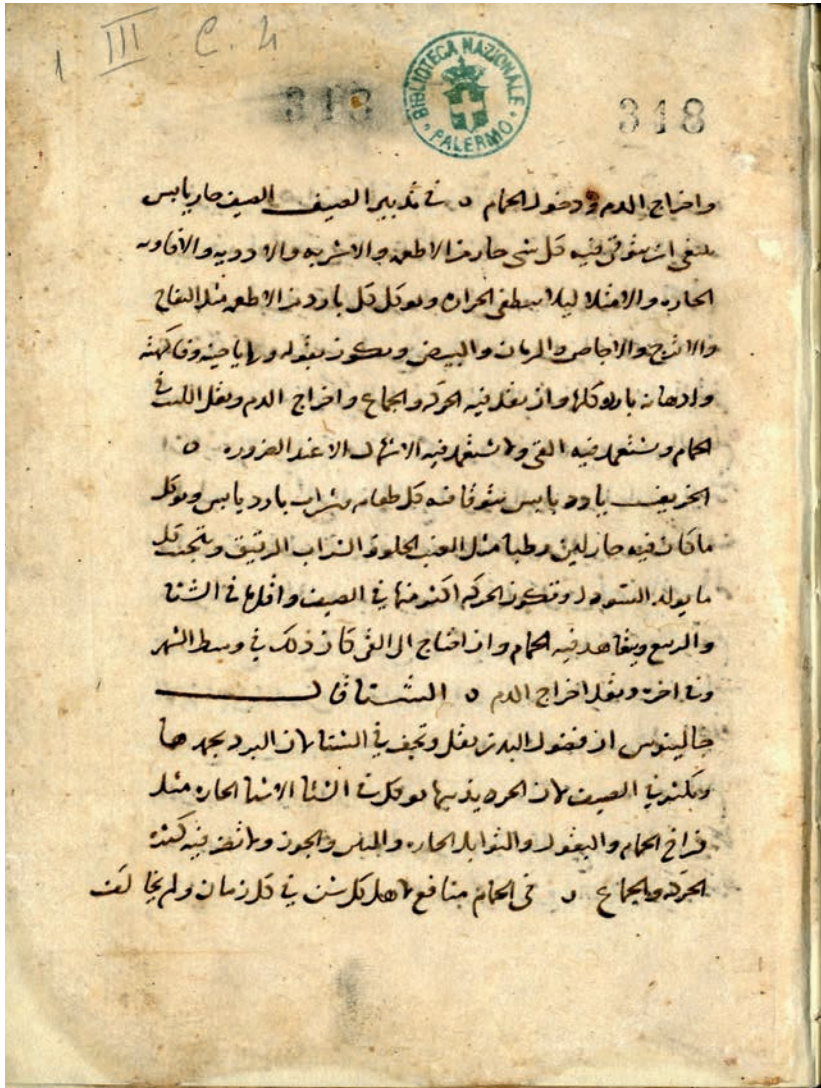 1 III . C. 4
BIBLIOTECA NAZIONALE PALERMO
318 318
واخراج الدم ودخول الحمام ه في تدبير الصيف الصيف حار يابس
ينبغي ان يتوقى فيه كل شي حار من الاطعمه والاشربه والادويه والافاويه
الحاره والامتلا ليلا الحراره ويوكل كل بارد من الاطعمه مثل التفاح
والاترج والاجاص والرمان والبيض ويكون بقوله ورياحينه وفاكهته
وادهانه بارده كلها وان يقلل فيه الحركه والجماع واخراج الدم ويقل اللبث في
الحمام ويستعمل فيه القي ولا يستعمل فيه الاسهال الا عند الضروره ه
الخريف بارد يابس يتوقا فيه كل طعام وشراب بارد يابس ويوكل
ما كان فيه حار لين رطبا مثل العنب الحلو والشراب الرقيق ويتجنب كل
ما يولد السودا وتكون الحركه اكثر منها في الصيف واقل منها في الشتا
والربيع ويتعاهد فيه الحمام وان احتاج الى القي كان ذلك في وسط الشهر
وفي اخره ويقلل اخراج الدم ه الشتا قال
جالينوس ان فضول البدن تقل وتجف في الشتا لان البرد يجمدها
وتكثر في الصيف لان الحر يذيبها يوكل في الشتا الاشيا الحاره مثل
فراخ الحمام والبقول والتوابل الحاره والتين والجوز ولا تضر فيه كثره
الحركه والجماع ه في الحمام منافع لاهل كل سن في كل زمان ولم يخالف